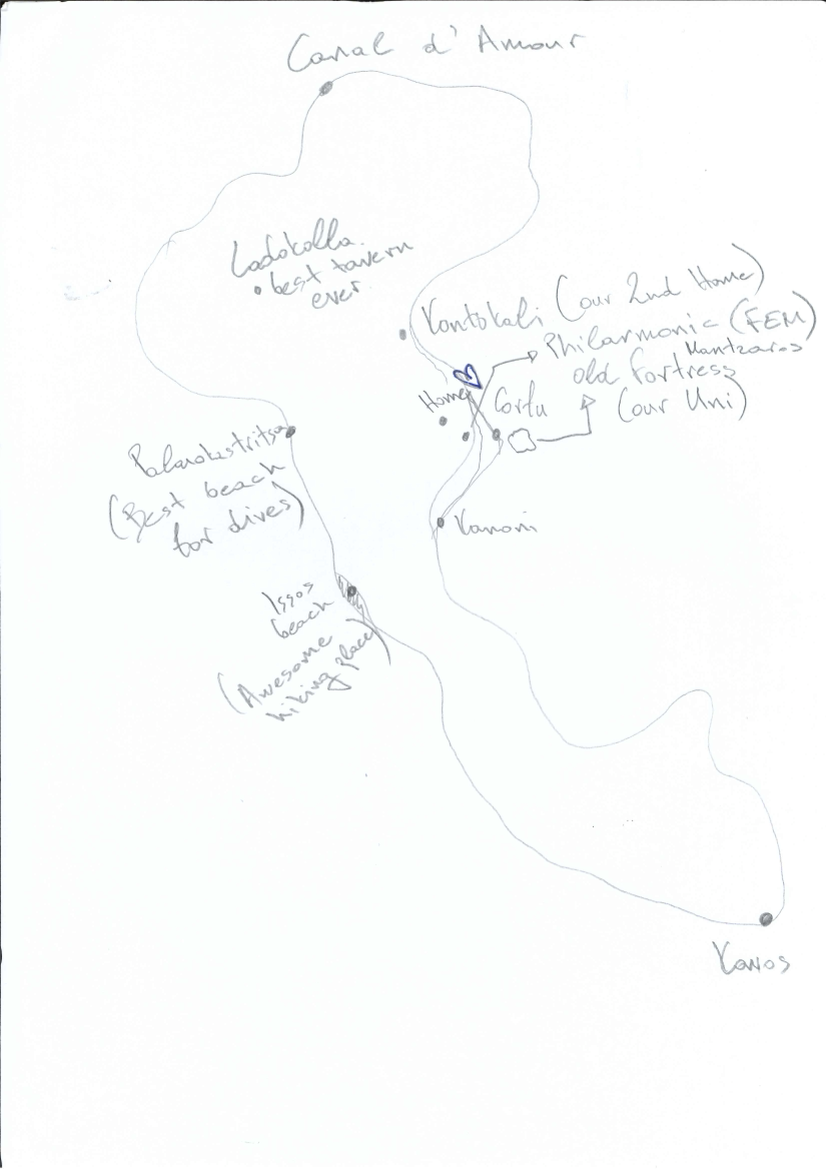 Canal d'Amour
Ladokolla
best tavern
ever
Kontokali (our 2nd Home)
Philarmonic (FEM)
Mantzaros
Old Fortress
(our Uni)
Home
Corfu
Palaiokastritsa
(Best beach
for dives)
Kanoni
Issos
beach
(Awesome
hiking place)
Kavos